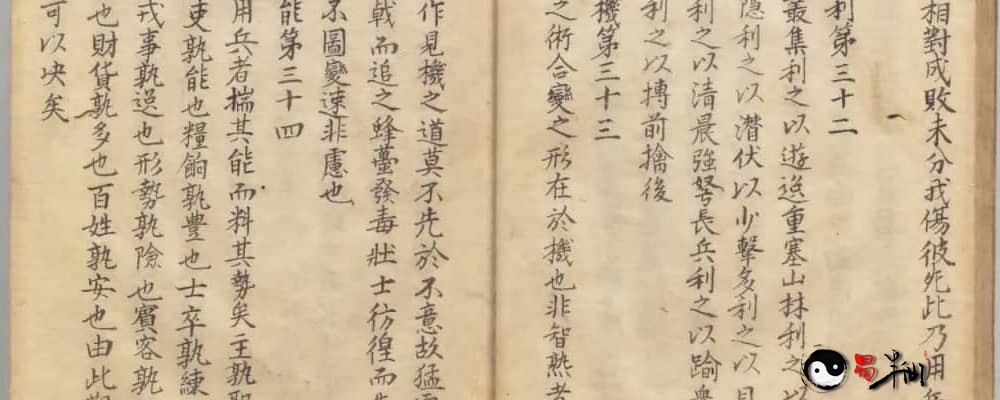 相對成敗未分我傷彼死此乃用
利第三十二
叢集利之以遊逸重塞山林利之以
隱利之以潛伏以少擊多利之以
利之以清晨強弩長兵利之以踰
利之以搏前擒後
機第三十三
之術合變之形在於機也非智熟者
作見機之道莫不先於不意故猛
戟而追之蜂蠆發毒壯士彷徨而
不圖變速非慮也
能第三十四
用兵者揣其能而料其勢矣主孰
吏孰能也糧餉孰豐也士卒孰練
戎事孰逸也形勢孰險也賓客孰
也財貨孰多也百姓孰安也由此
可以决矣
易半仙